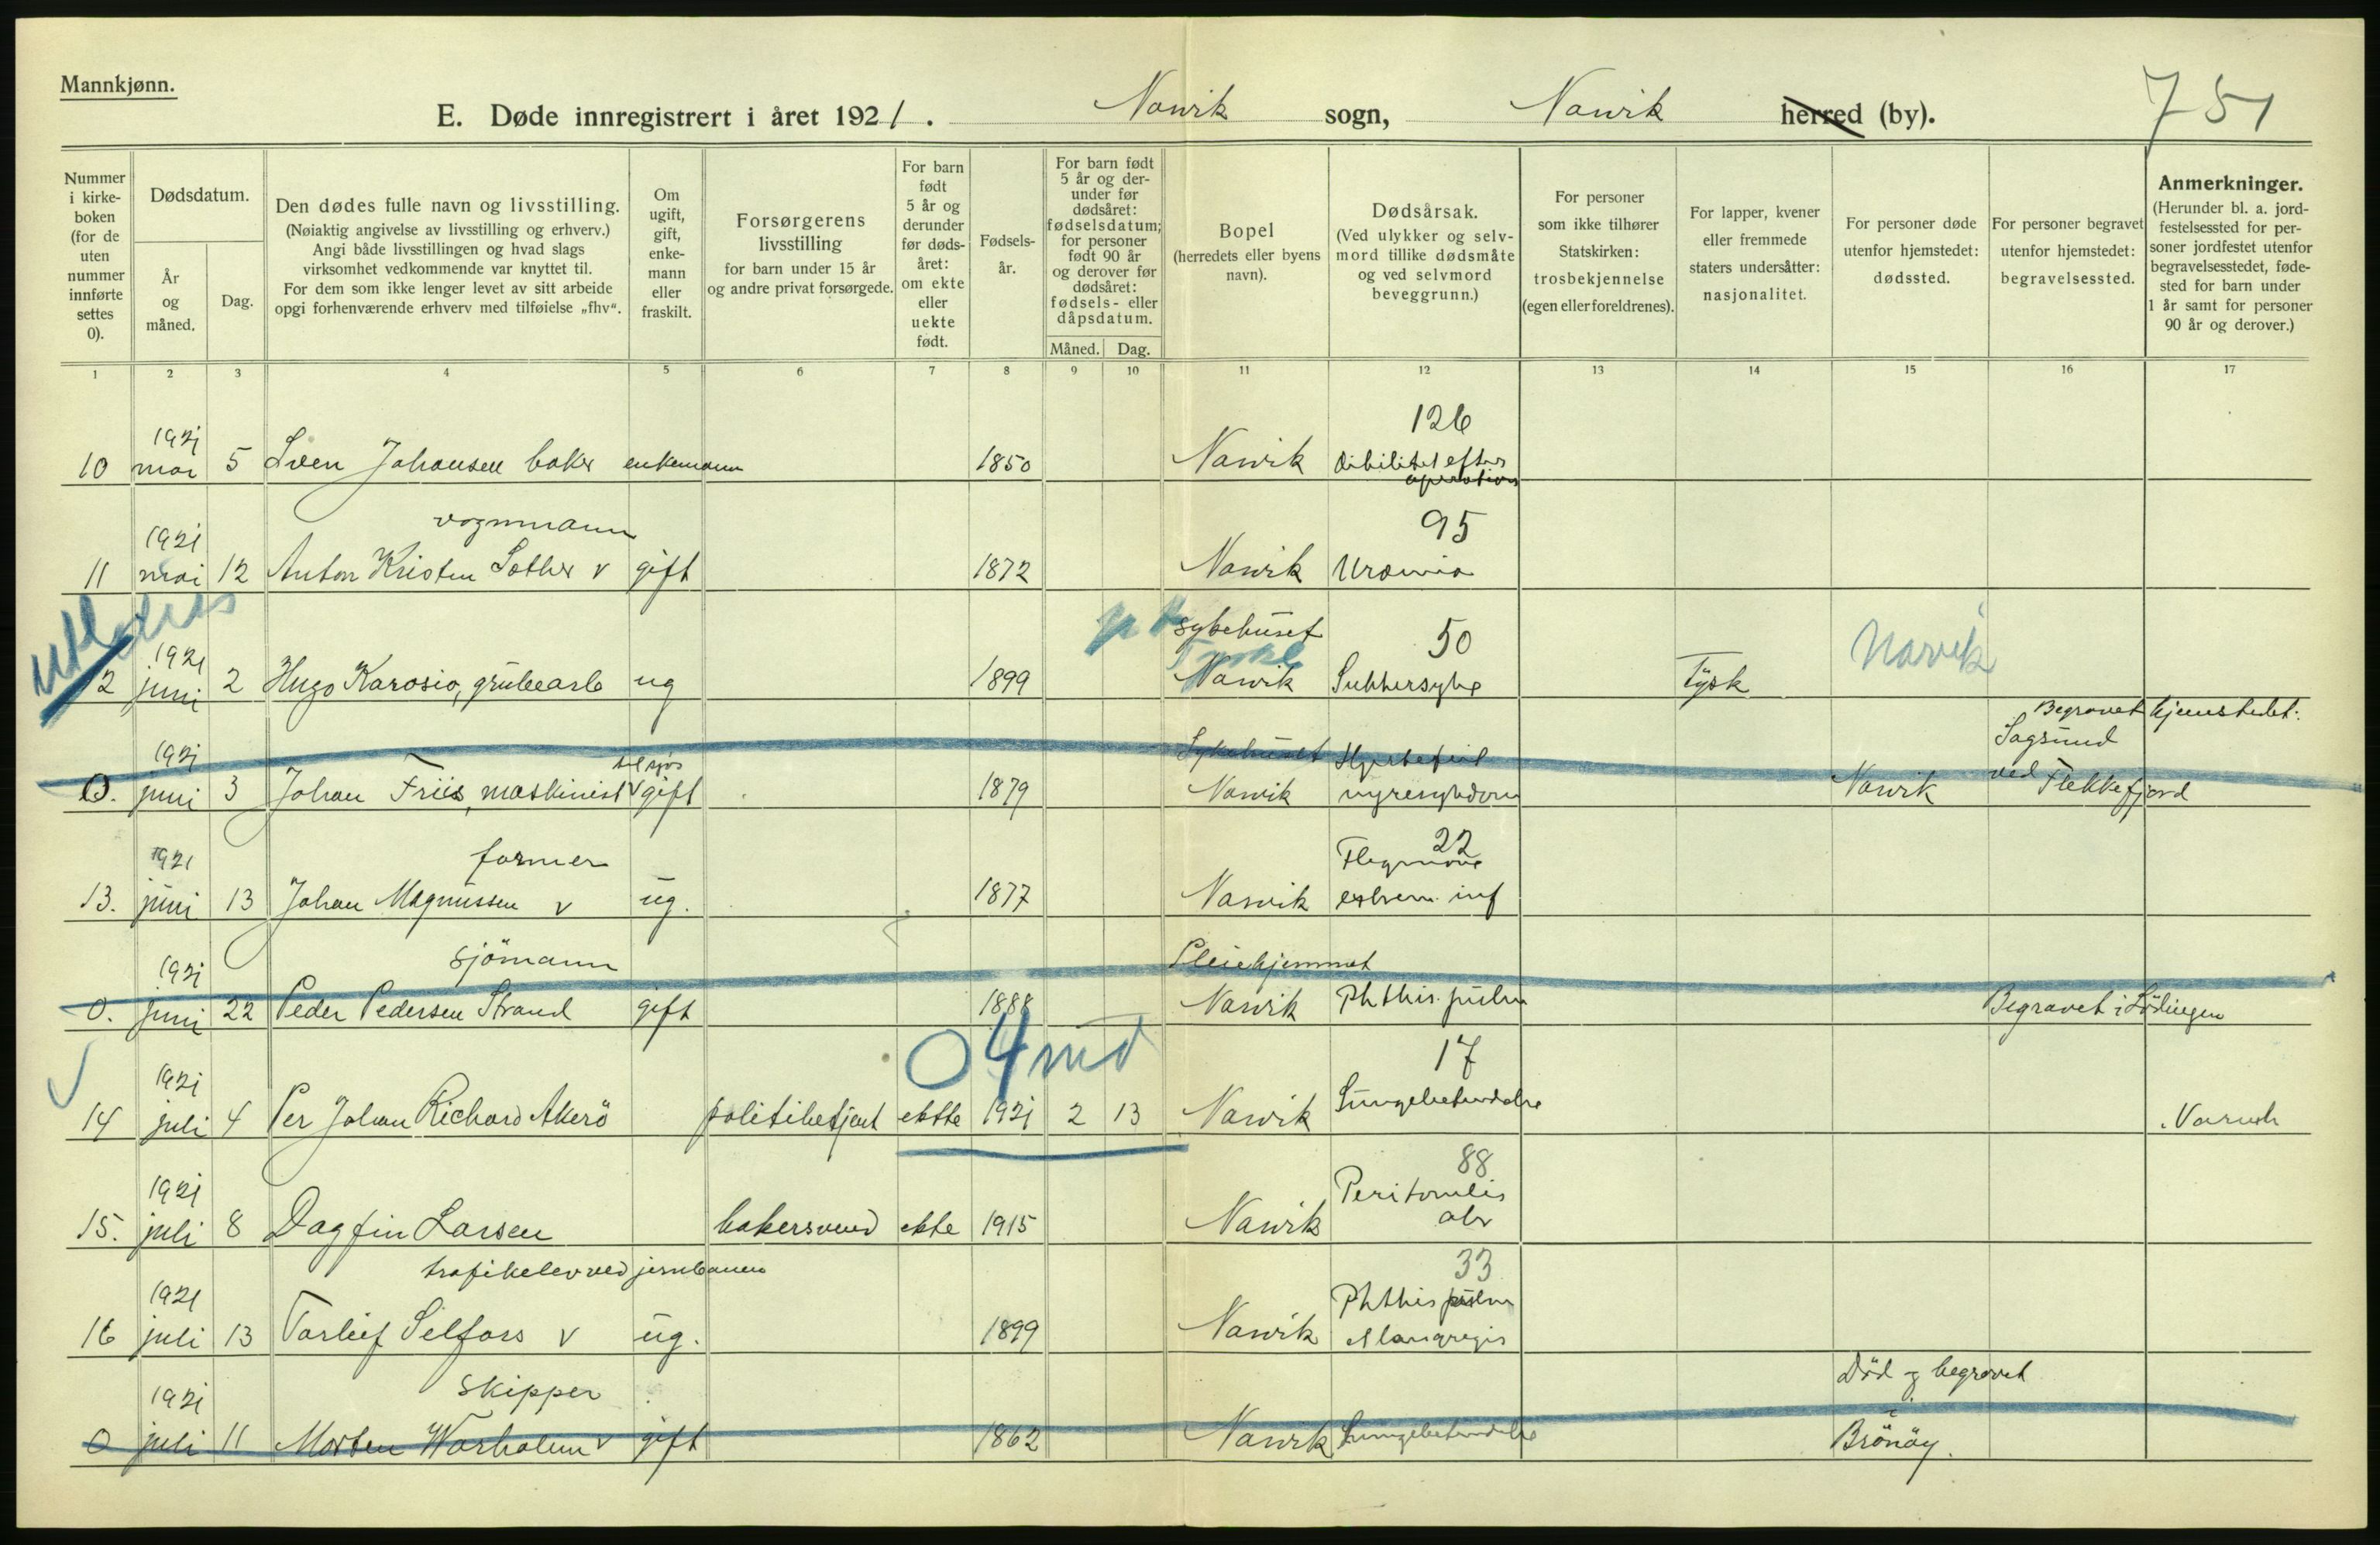 Mannkjønn.
E. Døde innregistrert i året 1921. Narvik sogn, Narvik herred (by). 751
Nummer i kirke-boken (for de uten nummer innførte settes 0).
Dødsdatum.
År og måned.
Dag.
Den dødes fulle navn og livsstilling.
(Nøiaktig angivelse av livsstilling og erhverv.)
Angi både livsstillingen og hvad slags
virksomhet vedkommende var knyttet til.
For dem som ikke lenger levet av sitt arbeide
opgi forhenværende erhverv med tilføielse „fhv“.
Om ugift, gift, enke-mann eller fraskilt.
Forsørgerens livsstilling
for barn under 15 år
og andre privat forsørgede.
For barn født 5 år og derunder før døds-året: om ekte eller uekte født.
Fødsels-år.
For barn født 5 år og der-under før dødsåret: fødselsdatum; for personer født 90 år og derover før dødsåret: fødsels- eller dåpsdatum.
Måned. Dag.
Bopel
(herredets eller byens navn).
Dødsårsak.
(Ved ulykker og selv-mord tillike dødsmåte og ved selvmord beveggrunn.)
For personer som ikke tilhører Statskirken: trosbekjennelse (egen eller foreldrenes).
For lapper, kvener eller fremmede staters undersåtter: nasjonalitet.
For personer døde utenfor hjemstedet: dødssted.
For personer begravet utenfor hjemstedet: begravelsessted.
Anmerkninger.
(Herunder bl. a. jord-festelsessted for per-soner jordfestet utenfor begravelsesstedet, føde-sted for barn under 1 år samt for personer 90 år og derover.)
1 2 3 4 5 6 7 8 9 10 11 12 13 14 15 16 17
1921 126
10 mai 5 Sven Johansen baker enkemann 1850 Narvik debilitet efter
operation
vognmann 95
1921
11 mai 12 Anton Kristen Sother v gift 1872 Narvik Uræmia
utlandes
sykehuset 50
1921 Tyskl Narvik
12 juni 2 Hugo Karosio, grubearb ug 1899 Narvik Sukkersyke Tysk
Begravet hjemstedet:
1921 til sjøs Sykehuset Hjertefeil Sagsund
0. juni 3 Johan Friis, maskinist v gift 1879 Narvik nyresykdom Narvik ved Flekkefjord
1921 former Flegmone 22
13. juni 13 Johan Magnussen v ug. 1877 Narvik extrem. inf
1921 sjömann Pleiehjemmet
0. juni 22 Peder Pedersen Strand gift 1888 Narvik Phthis. pulm Begravet i Lödingen
0 4 md
1921 17
14 juli 4 Per Johan Richard Akerö politibetjent ekte 1921 2 13 Narvik Lungebetendelse Narvik
1921 88
Peritonitis
15. juli 8 Dagfin Larsen bakersvend ekte 1915 Narvik
trafikelev ved jernbanen 33
1921 Phthis pulm
16 juli 13 Torleif Selfors v ug. 1899 Narvik
1921 skipper Död og begravet
i
0 juli 11 Morten Warholum v gift 1862 Narvik Lungebetendelse Brönöy.